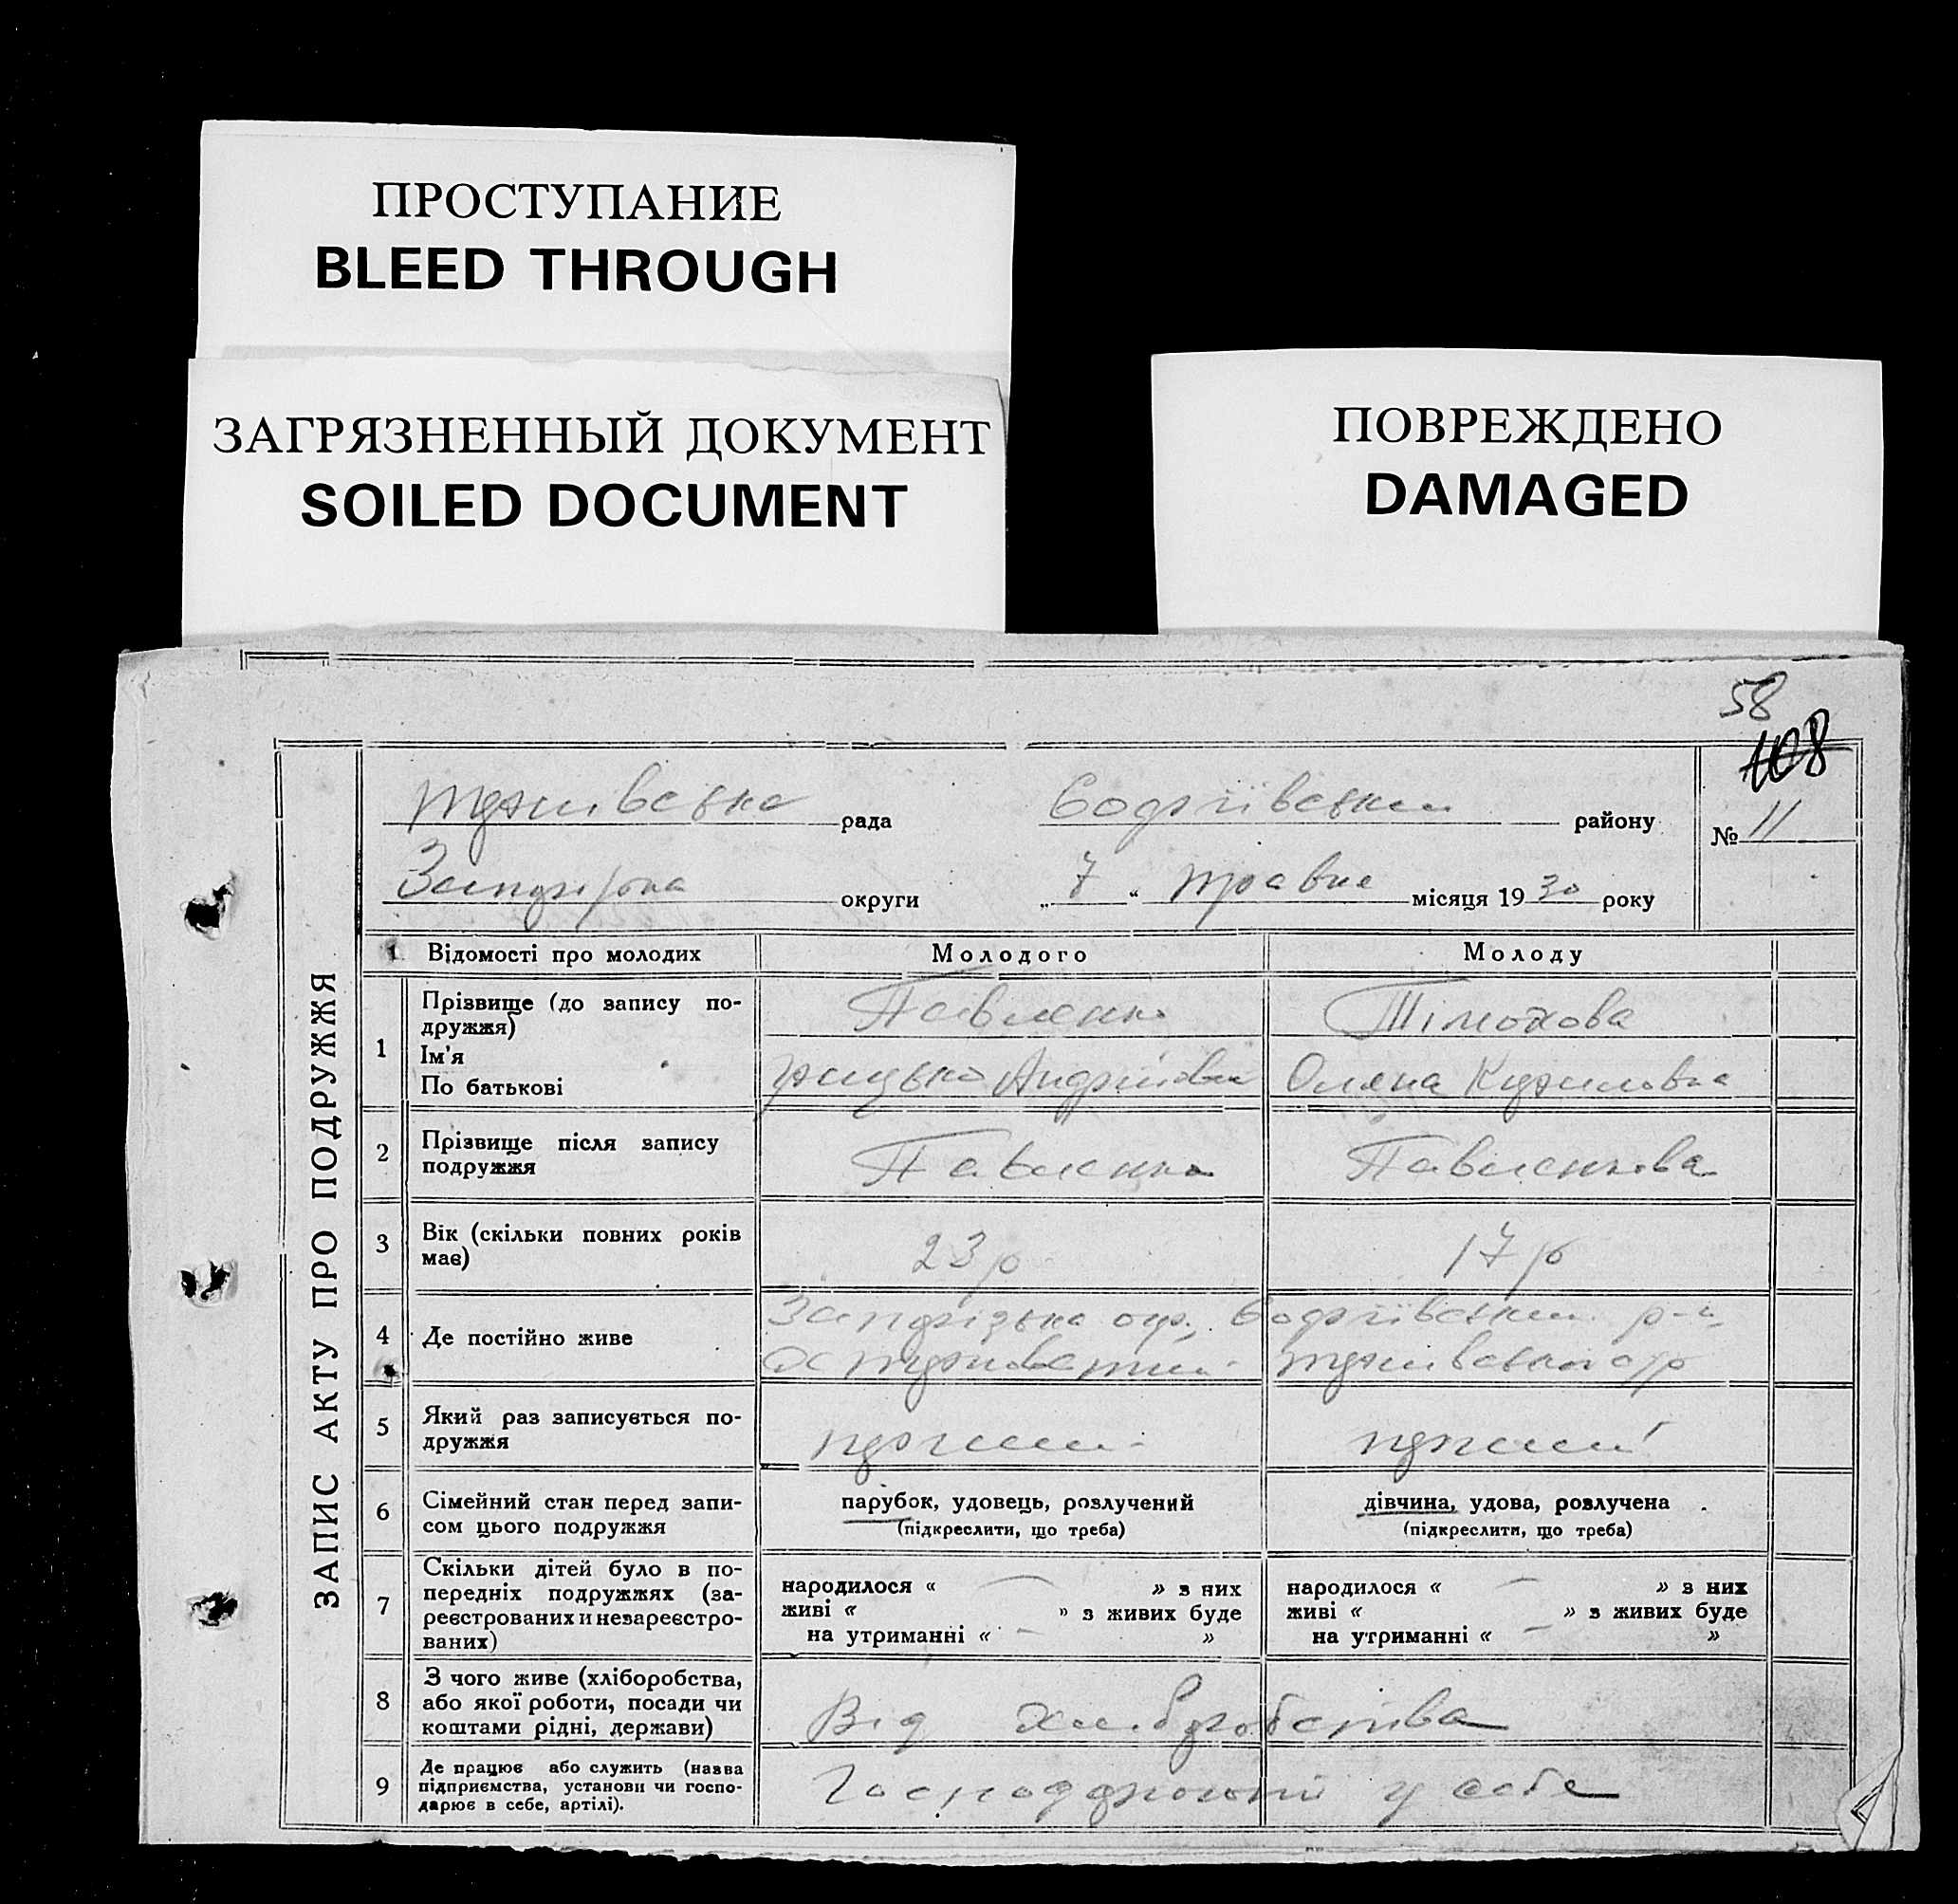 ПРОСТУПАНИЕ
BLEED THROUGH
ЗАГРЯЗНЕННЫЙ ДОКУМЕНТ
SOILED DOCUMENT
ПОВРЕЖДЕНО
DAMAGED
58
108
рада
району
№ 11
округи
„ 7 “ травня місяця 19 30 року
ЗАПИС АКТУ ПРО ПОДРУЖЖЯ
1 Відомості про молодих
Молодого
Молоду
1
Прізвище (до запису по-
дружжя)
Ім'я
По батькові
Павленко
Тімохова
Грицько Андрійович
Олена
2
Прізвище після запису
подружжя
Павленко
Павленкова
3
Вік (скільки повних років
має)
23 р
17 р
4
Де постійно живе
5
Який раз записується по-
дружжя
перший
перший
6
Сімейний стан перед запи-
сом цього подружжя
парубок, удовець, розлучений
(підкреслити, що треба)
дівчина, удова, розлучена
(підкреслити, що треба)
7
Скільки дітей було в по-
передніх подружжях (за-
реєстрованих и незареєстро-
ваних)
народилося « — » з них
живі « » з живих буде
на утриманні « — »
народилося « — » з них
живі « » з живих буде
на утриманні « — »
8
З чого живе (хліборобства,
або якої роботи, посади чи
коштами рідні, держави)
Від хліборобства
9
Де працює або служить (назва
підприємства, установи чи госпо-
дарює в себе, артілі).
у себе